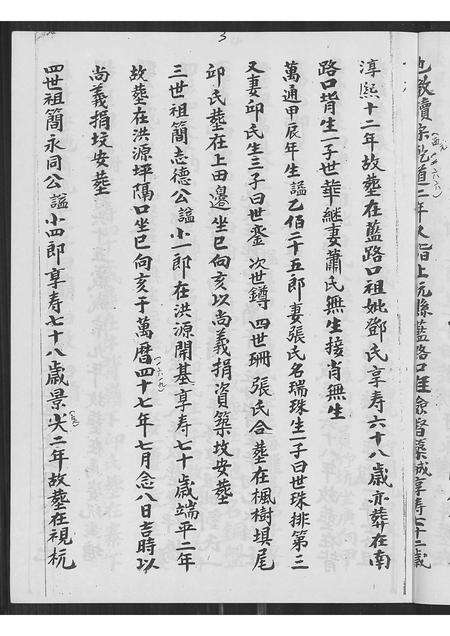 淳熙十二年故塟在藍路口祖妣鄧氏享寿六十八歲亦葬在南
路口背生一子世華継妻蕭氏無生接肖無生
萬通甲辰年生諡乙佰二十五郎妻張氏名瑞珠生一子曰世珠排第三
又妻邱氏生三子曰世鑾 次世鐏 四世珊 張氏合塟在楓樹埧尾
邱氏塟在上田邊坐巳向亥以尚義捐資築坟安塟
三世祖簡志德公諡小一郎在洪源開基享寿七十歲端平二年
故塟在洪源坪隔口坐巳向亥于萬曆四十七年七月念八日吉時以
尚義捐坟安塟
四世祖簡永同公諡小四郎享寿七十八歲景炎二年故塟在視杬